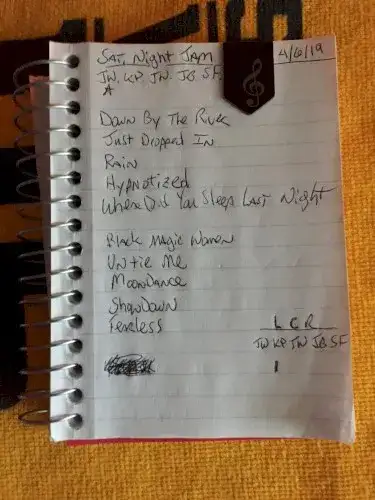 Sat, Night Jam 4/6/19
JW. KP. JN. JG SF.
A
Down By The River
Just Dropped In
Rain
Hypnotized
Where Did You Sleep Last Night
Black Magic Women
Untie Me
MoonDance
ShowDown
Fearless
L C R
JW KP JW JG SF
1